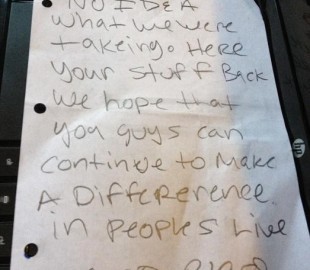 NO IDEA
what we were
takeing. Here
your stuff Back
we hope that
you guys can
continue to make
A Difference.
in peoples Live
GOD BLESS
hp